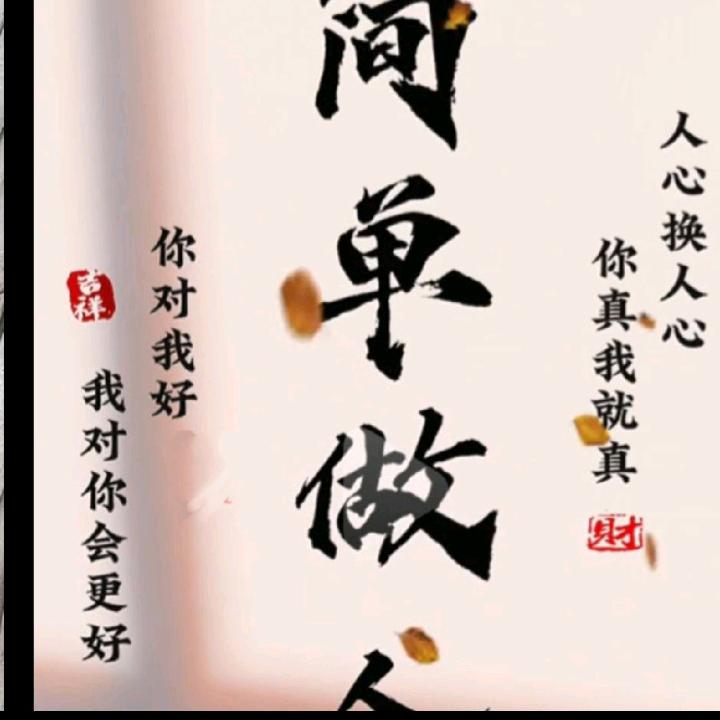 人心换人心
你真我就真
财
简单做人
你对我好
我对你会更好
吉祥